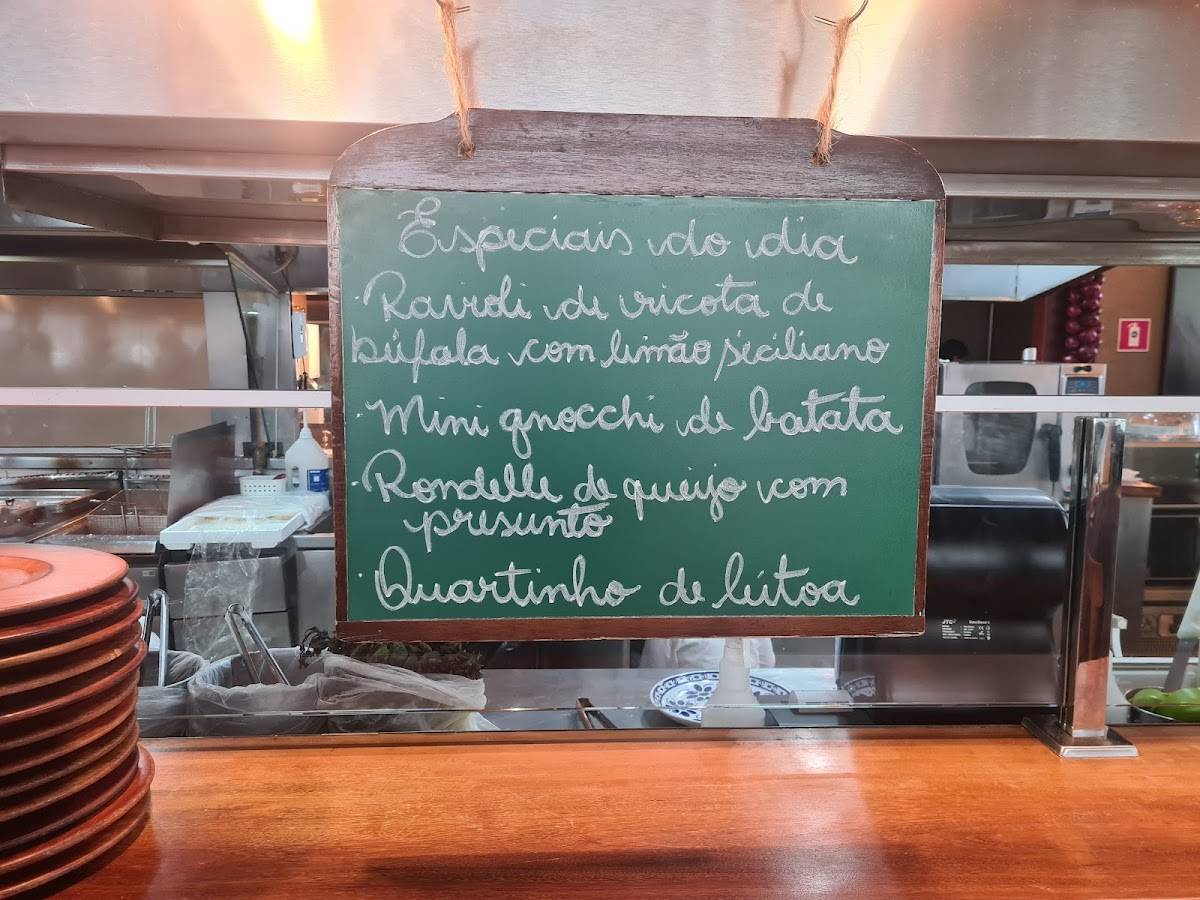 Especiais do dia
· Ravioli de ricota de
búfala com limão siciliano
· Mini gnocchi de batata
· Rondelle de queijo com
presunto
· Quartinho de leitoa
JTC